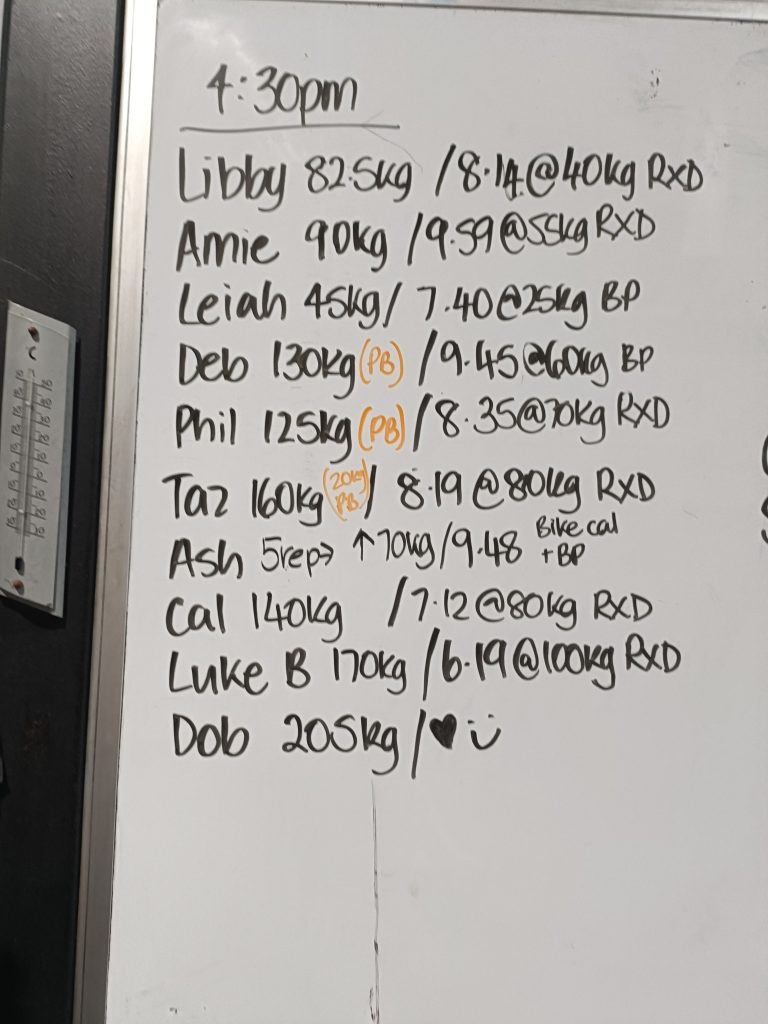 4:30pm
Libby 82.5kg /8.14@40kg RXD
Amie 90kg /9.59@55kg RXD
Leiah 45kg/ 7.40@25kg BP
Deb 130kg(PB) /9.45@60kg BP
Phil 125kg(PB)/8.35@70kg RXD
Taz 160kg(20kg PB)/ 8.19@80kg RXD
Ash 5rep→ ↑70kg/9.48 Bike cal + BP
Cal 140kg /7.12@80kg RXD
Luke B 170kg/6.19@100kg RXD
Dob 205kg/♥ü